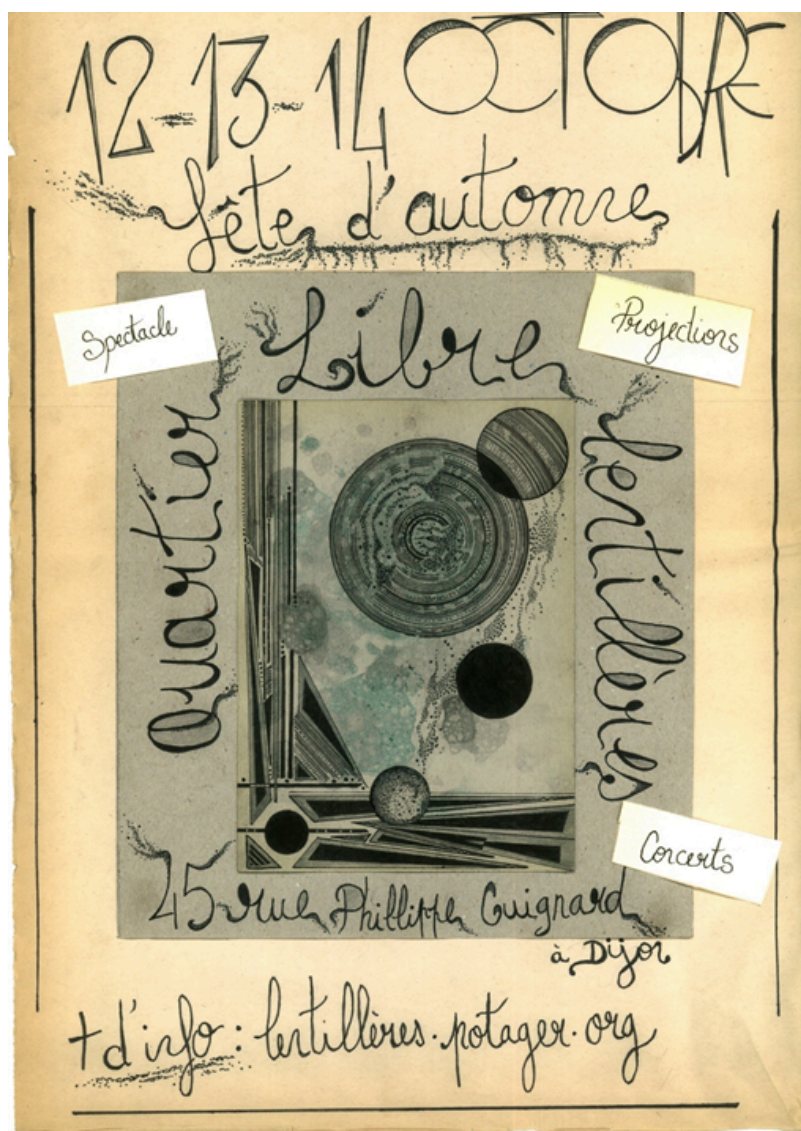 12-13-14 OCTOBRE
fête d'automne
Spectacle
Projections
Quartier
Libre
Lentillères
Concerts
45 rue Phillippe Guignard
à Dijon
+ d'info : lentillères.potager.org